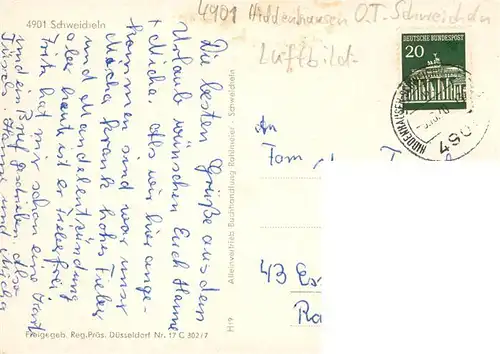 4901 Schweicheln
4901 Hiddenhausen O.T. Schweicheln
Luftbild
DEUTSCHE BUNDESPOST
20
HIDDENHAUSEN
490
Die besten Grüße aus dem
Urlaub wünschen Euch Hanne
+ Micha. Als wir hier ange-
kommen sind war unser
Micha krank hohes Fieber
und Mandelentzündung
aber heute ist er fieberfrei.
Fritz hat mir schon eine Karte
und ein Brief geschrieben. Also
Tschüß Hanne und Micha
An
Fam
43 Es
Alleinvertrieb Buchhandlung Rahlmeier · Schweicheln
H 9
Freigegeb. Reg. Präs. Düsseldorf Nr. 17 C 302/7